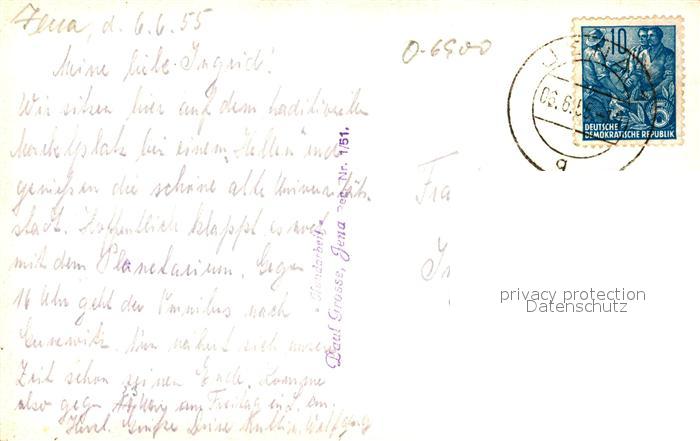 Jena, d. 6.6.55
Meine liebe Ingrid!
Wir sitzen hier auf dem traditionellen
Marktplatz bei einem "Hellen" und
genießen die schöne alte Universitäts-
stadt. Hoffentlich klappt es noch
mit dem Planetarium. Gegen
16 Uhr geht der Omnibus nach
Nun nähert sich unsere
Zeit schon seinen Ende. Komme
also gegen am Freitag in L. an.
Herzl. Grüße Deine Wolfgang
0-6900
"Handarbeit"
Paul Grosse, Jena Reg. Nr. 1/51.
JENA
06.6.55
g
10
5
DEUTSCHE
DEMOKRATISCHE REPUBLIK
privacy protection
Datenschutz